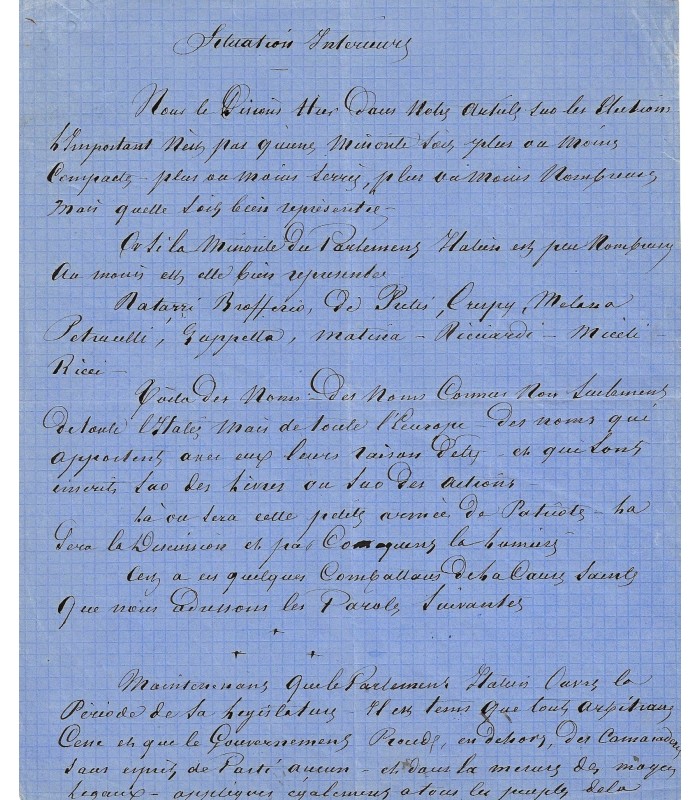 Situation Interieure
Nous le Disions Hier Dans Notre Article sur les Elections
L'Important N'est pas qu'une Minorité soit plus ou moins
Compacte – plus ou moins serrée, plus ou moins Nombreuse
Mais quelle soit bien représentée –
Or si la Minorité du Parlement Italien est peu Nombreuse
Au moins est elle bien representée
Ratazzi Brofferio, de Petis, Crispy, Melana
Petrucelli, Zuppetta, Matina – Ricciardi – Miceli –
Ricci –
Voila des Noms – Des Noms Connus Non Seulement
de toute l'Italie Mais de toute l'Europe – des noms qui
apportent avec eux leurs raison d'etre – et qui sont
inscrits sur des Livres ou sur des actions –
La ou sera cette petite armée de Patriote – La
Sera la Discussion et par Consequent la Lumière
C'est a ces quelques Combattans de La Cause Sainte
Que nous adressons les Paroles Suivantes
+
+ +
Maintenant Que le Parlement Italien Ouvre la
Période de Sa Legislature – Il est tems que tout arbitraire
Cesse et que le Gouvernement Prenne, en dehors, des Camaraderies
sans esprit de Parti aucun – et dans la mesure des moyens
Legaux – appliques egalement a tous les peuples de la